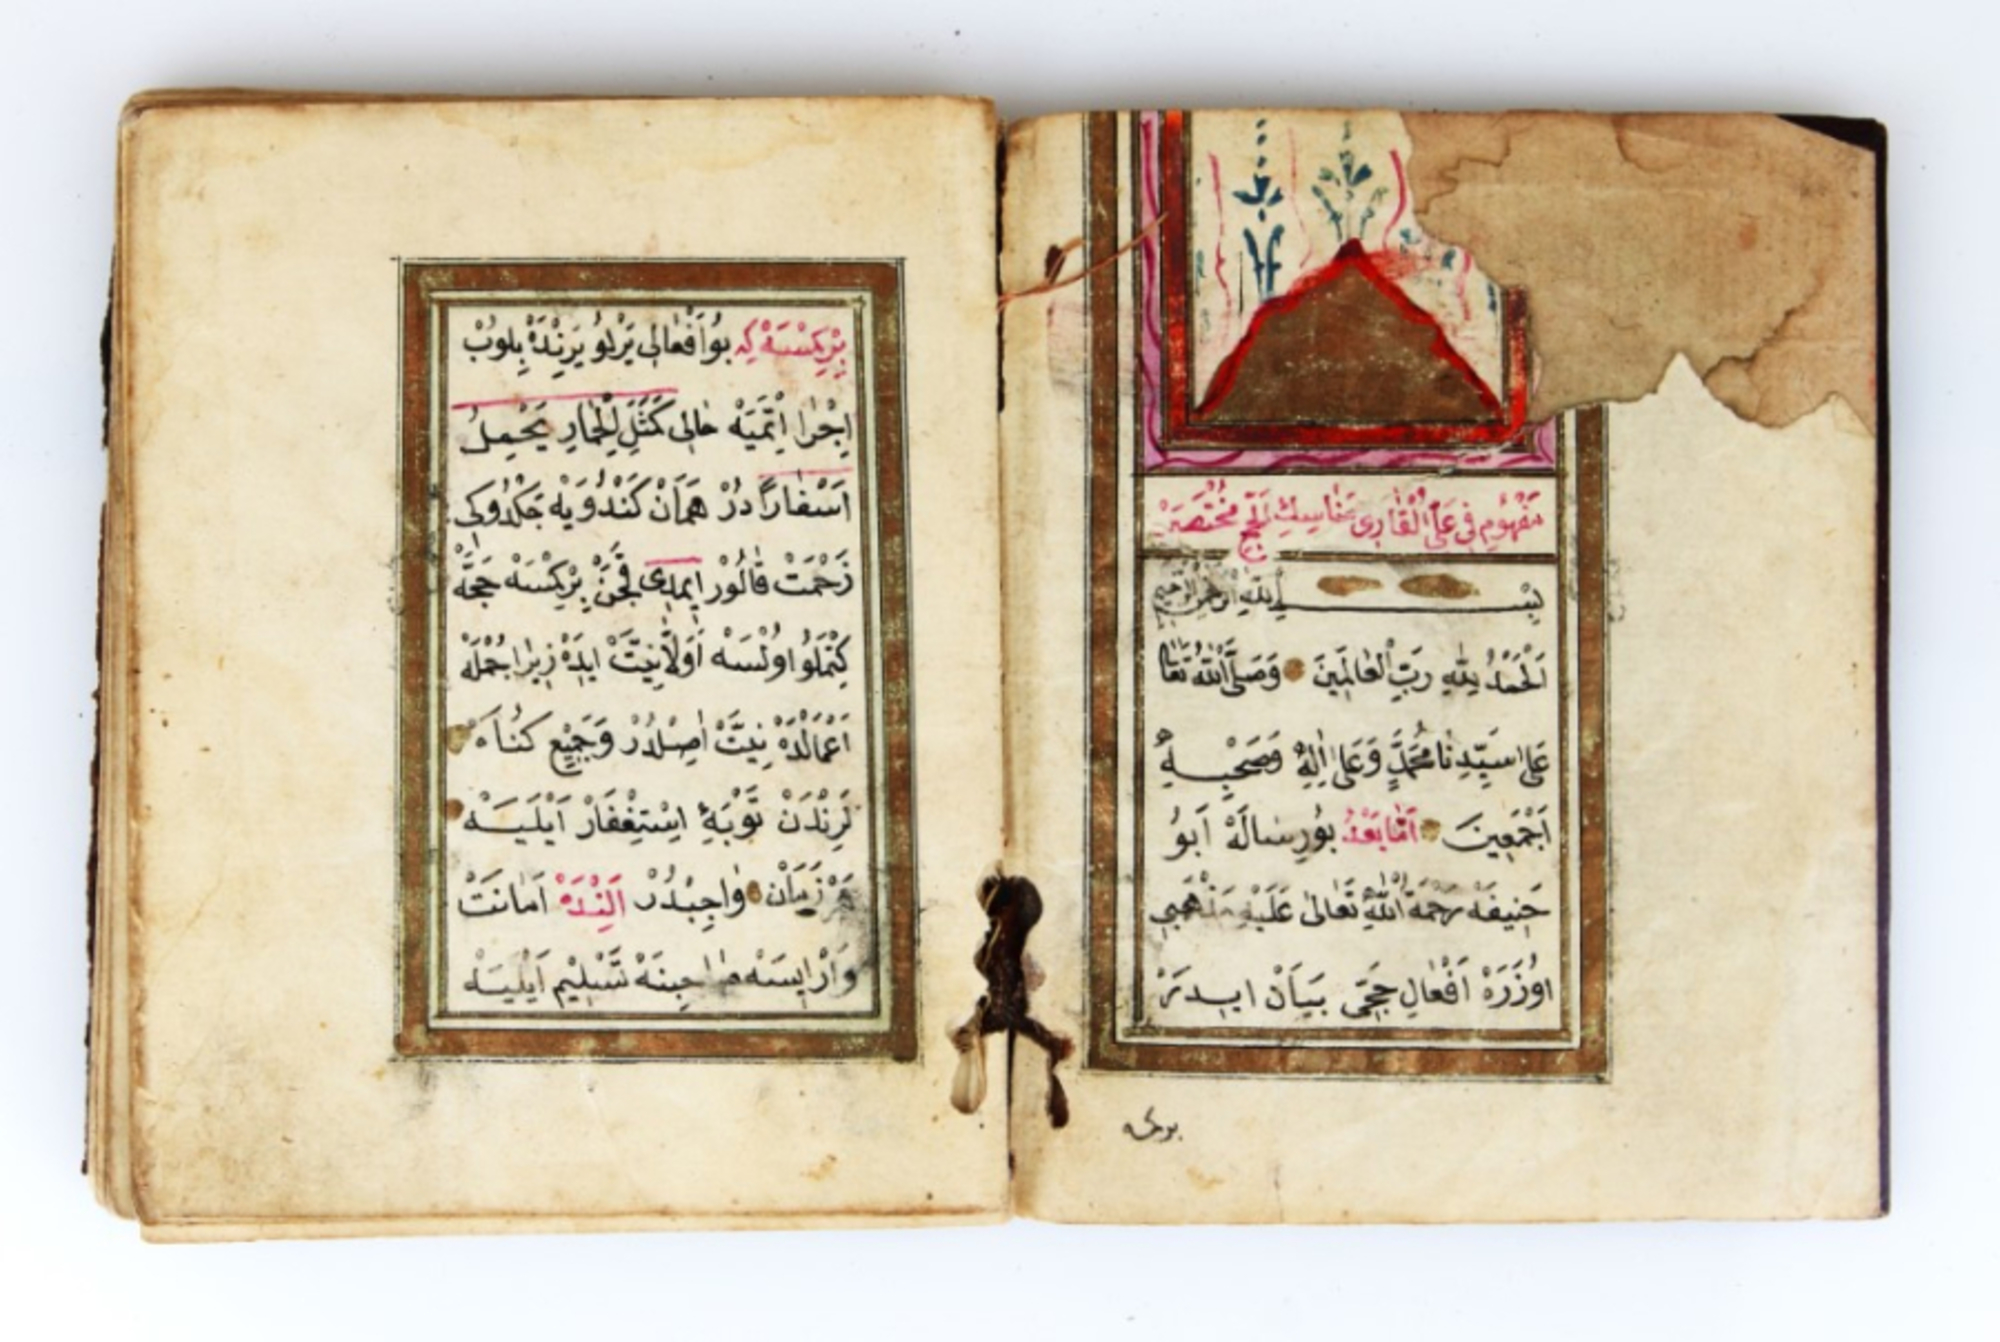 مَفْهُومِ فِي عَلِّ الْقَارِى مَنَاسِكِ الْحَجِّ مُخْتَصَرْ
بِسْمِ اللهِ الرَّحْمٰنِ الرَّحِيمِ
اَلْحَمْدُ لِلّٰهِ رَبِّ الْعَالَمِينَ وَصَلَّى اللهُ تَعَا
عَلَى سَيِّدِنَا مُحَمَّدٍ وَعَلَى اٰلِهِ وَصَحْبِهِ
اَجْمَعِينَ اَمَّا بَعْدُ بُورِسَالَهْ اَبُو
حَنِيفَه رَحْمَةُ اللهِ تَعَالىٰ عَلَيْهِ مَذْهَبِى
اُوزَرَهْ اَفْعَالِ حَجِّى بَيَانْ ايدَرْ
بركسه
بِرْكِسَنْه كِه بُو اَفْعَالِى يَرْلُو يَرِنْدَهْ بِلُوبْ
اِجْرَا اِتْمَيَهْ حَالِى كَمَثَلِ الْحِمَارِ يَحْمِلُ
اَسْفَارًا دُرْ هَمَانْ كَنْدُويَهْ چَكْدُوكِى
زَحْمَتْ قَالُورْ اِيمدِى قَچَنْ بِرْكِسَنَهْ حَجَّهْ
كِتْمَلُو اولْسَهْ اَوَّلَا نِيَّتْ ايدَهْ زِيرَا جُمْلَه
اَعْمَالْدَهْ نِيَّتْ اَصِلْدُرْ وَجَمِيعِ كُنَاهْ
لَرِنْدَنْ تَوْبَهٔ اِسْتِغْفَارْ اَيْلَيَهْ
هَرْ زَمَانْ وَاجِبْدُرْ اَلِنْدَهْ اَمَانَتْ
وَارْ اِيسَهْ صَاحِبِنَهْ تَسْلِيمْ اَيْلَيَهْ